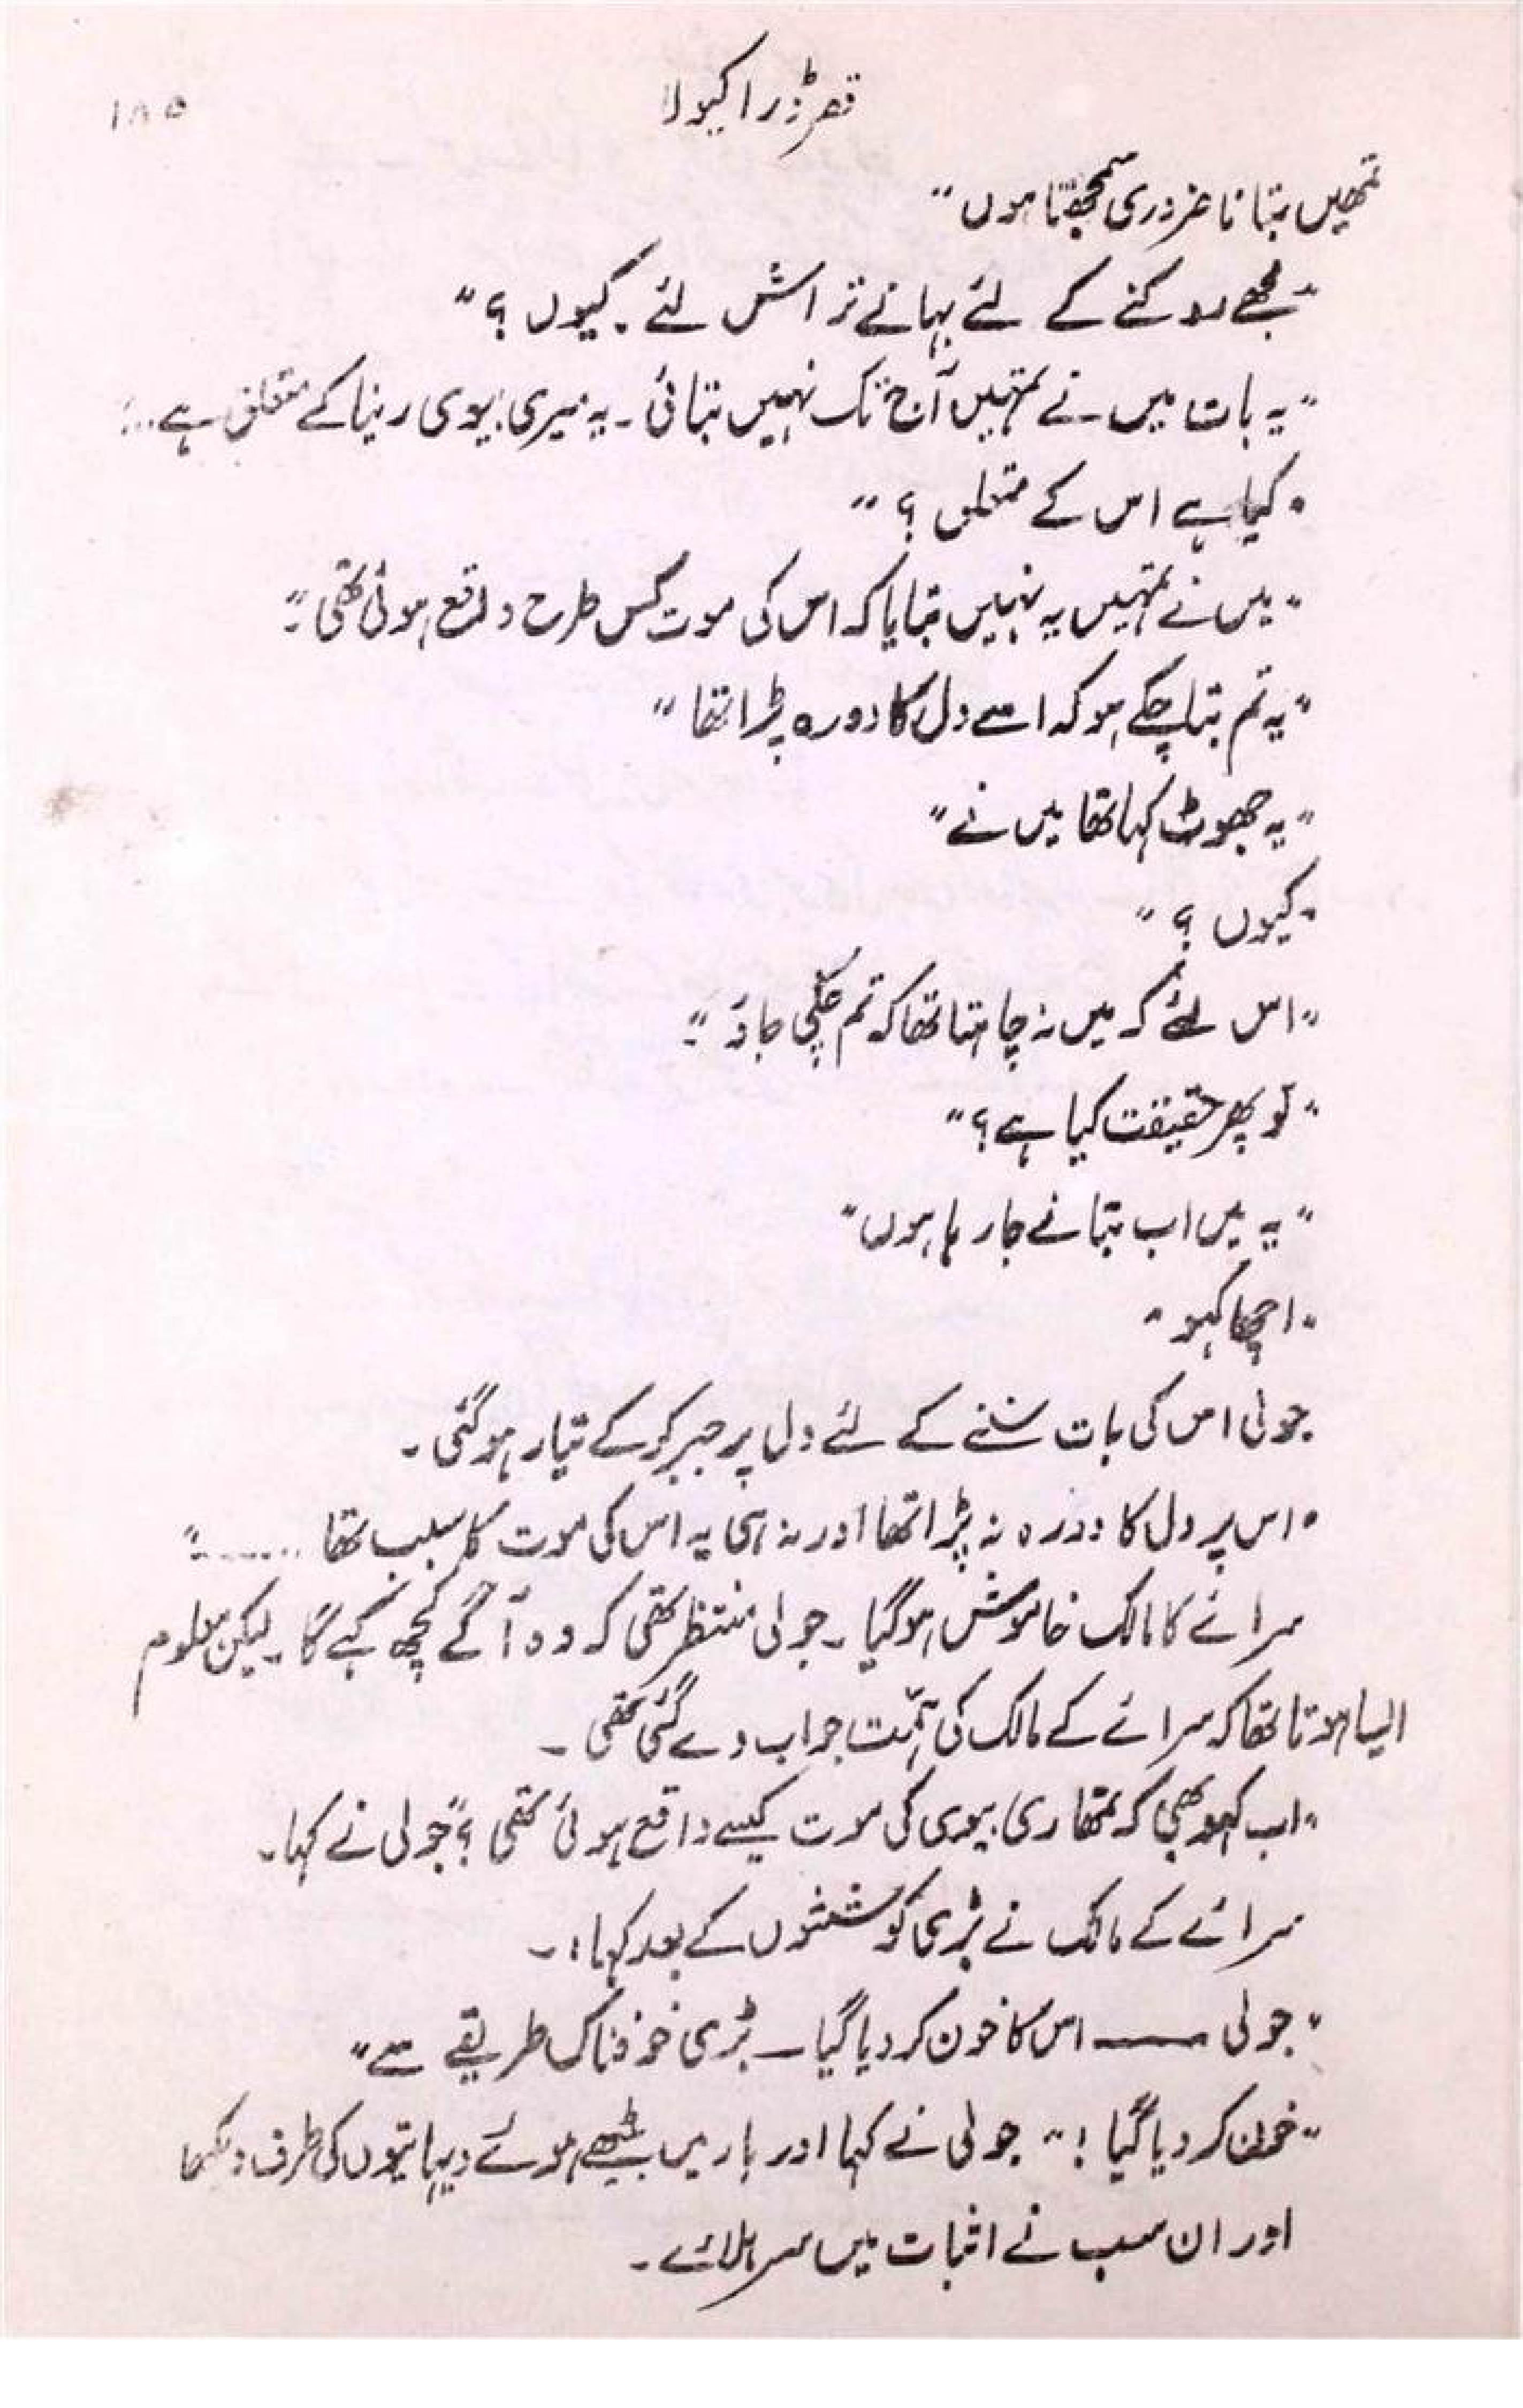 ۱۸۵
تھرڈ ڈراکیولا
تمھیں بتانا ضروری سمجھتا ہوں"
"مجھے روکنے کے لئے بہانے تراش لئے۔ کیوں؟"
"یہ بات میں نے تمہیں آج تک نہیں بتائی۔ یہ میری بیوی رینا کے متعلق ہے..."
"کیا ہے اس کے متعلق؟"
"میں نے تمہیں یہ نہیں بتایا کہ اس کی موت کس طرح واقع ہوئی تھی۔"
"یہ تم بتا چکے ہو کہ اسے دل کا دورہ پڑا تھا"
"یہ جھوٹ کہا تھا میں نے"
"کیوں؟"
"اس لئے کہ میں نہ چاہتا تھا کہ تم چلی جاؤ۔"
"تو پھر حقیقت کیا ہے؟"
"یہ میں اب بتانے جا رہا ہوں"
"اچھا کہو"
جولی اس کی بات سننے کے لئے دل پر جبر کر کے تیار ہو گئی۔
"اس پر دل کا دورہ نہ پڑا تھا اور نہ ہی یہ اس کی موت کا سبب تھا ......."
سرائے کا مالک خاموش ہو گیا۔ جولی منتظر تھی کہ وہ آگے کچھ کہے گا۔ لیکن معلوم
ایسا ہوتا تھا کہ سرائے کے مالک کی ہمت جواب دے گئی تھی۔
"اب کہو بھی کہ تمھاری بیوی کی موت کیسے واقع ہوئی تھی؟" جولی نے کہا۔
سرائے کے مالک نے بڑی کوششوں کے بعد کہا:۔
"جولی ——— اس کا خون کر دیا گیا۔ بڑی خوفناک طریقے سے"
"خون کر دیا گیا!" جولی نے کہا اور بار میں بیٹھے ہوئے دیہاتیوں کی طرف دیکھا
اور ان سب نے اثبات میں سر ہلائے۔